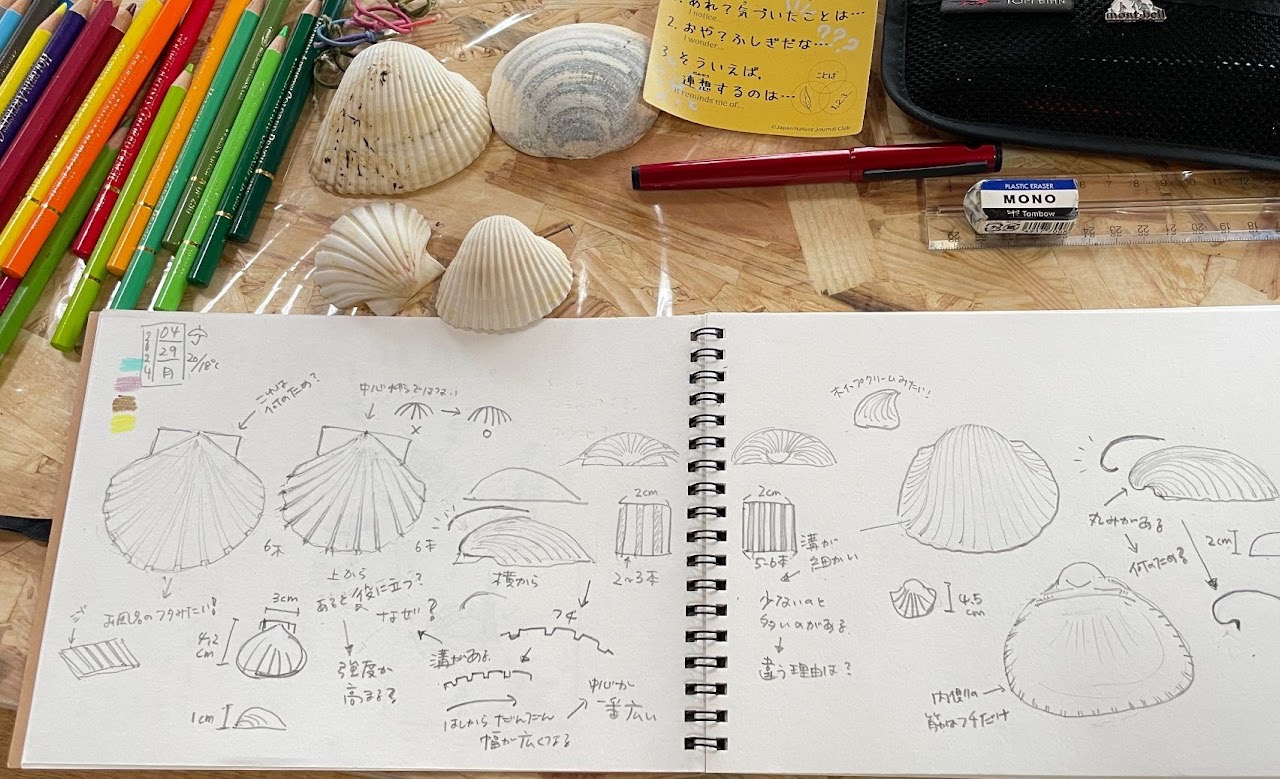 1. あれ？気づいたことは…
I notice...
2. おや？ふしぎだな…
I wonder...
3. そういえば、
連想するのは…
It reminds me of...
ことば
1.2.3
©Japan Nature Journal Club
mont-bell
PLASTIC ERASER
MONO
Tombow
2024
04
29
月
20/18℃
これは
何のため？
中心
×
○
6本
6本
上から
横から
お風呂のフタみたい！
3cm
4.2
cm
1cm
あると役に立つ？
なぜ？
強度が
高まる？
溝がある
フチ
はしからだんだん
幅が広くなる
中心が
一番広い
2cm
2~3本
2cm
5-6本
溝が
細かい
少ないのと
多いのがある
違う理由は？
ホイップクリームみたい！
4.5
cm
丸みがある
何のため？
2cm
内側の
筋はフチだけ